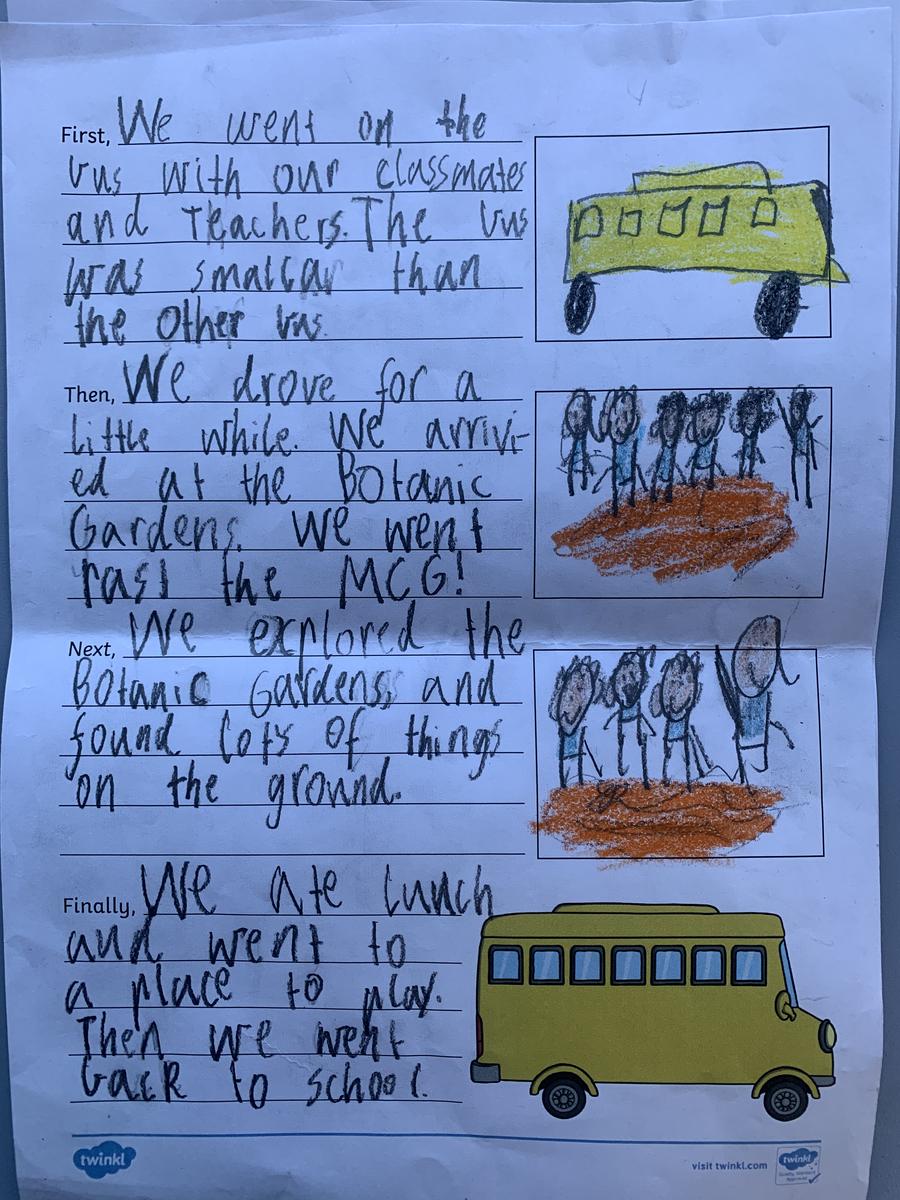 First, We went on the
bus with our classmates
and Teachers. The bus
was smallar than
the other bus.
Then, We drove for a
little while. We arrivi-
ed at the Botanic
Gardens. We went
past the MCG!
Next, We explored the
Botanic Gardens, and
found lots of things
on the ground.
Finally, We ate lunch
and went to
a place to play.
Then we went
back to school.
twinkl
visit twinkl.com
twinkl
Quality Standard
Approved